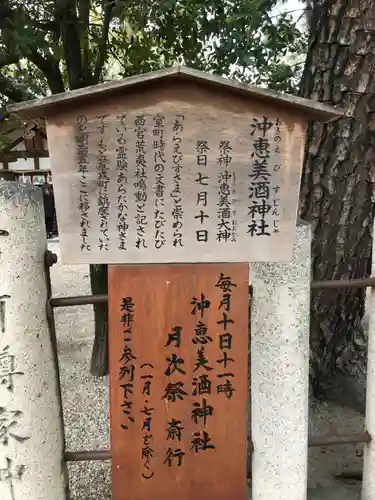 沖恵美酒神社
おきのえびすじんじゃ
祭神 沖恵美酒大神
おおかみ
祭日 七月十日
「あらえびすさま」と崇められ
室町時代の文書にたびたび
西宮荒夷社鳴動と記され
ている霊験あらたかな神さま
です もと荒戎町に鎮座されていた
のを明治五年ここに移されました
毎月十日十一時
沖恵美酒神社
月次祭斎行
(一月・七月を除く)
是非ご参列下さい